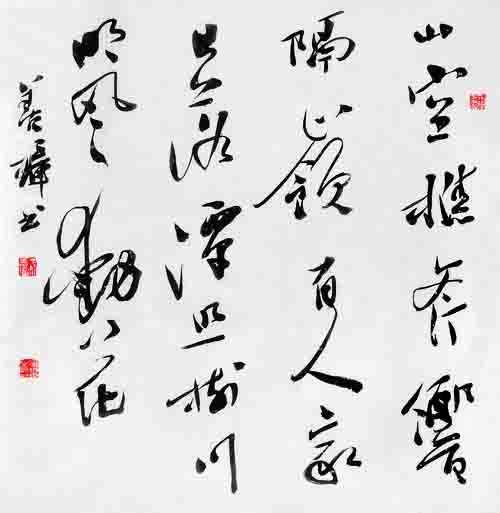 山空樵斧響
隔嶺有人家
日落潭照樹川
明風動花
善书